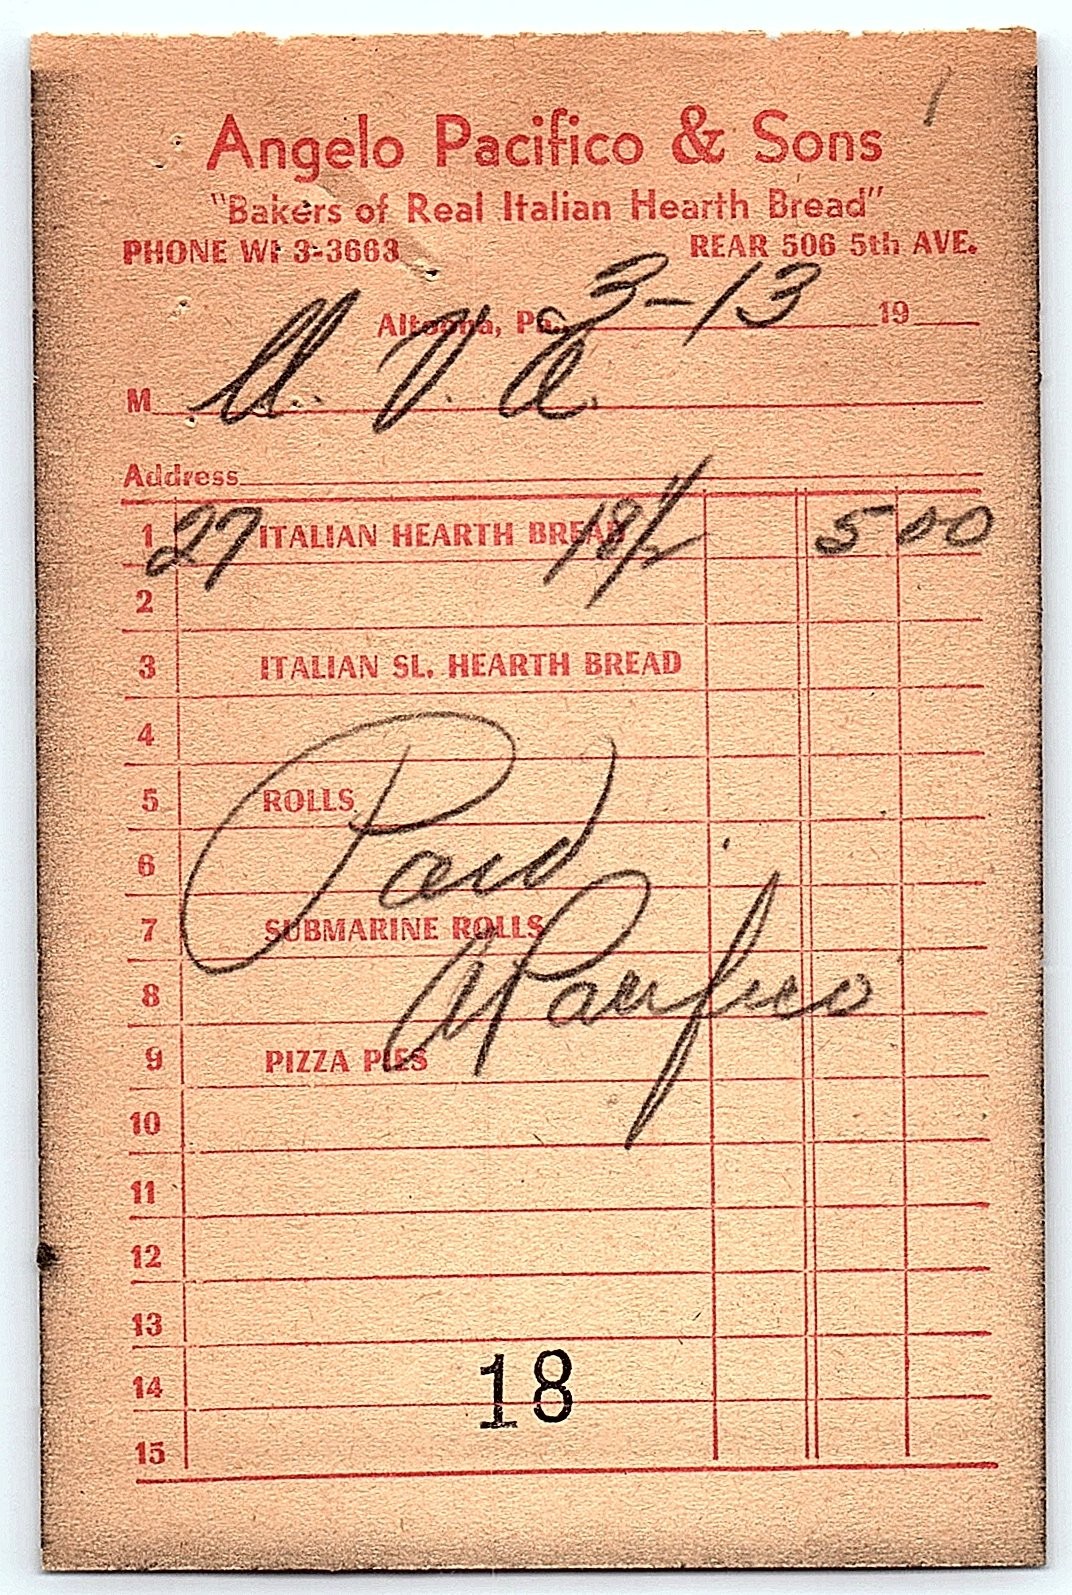 Angelo Pacifico & Sons
"Bakers of Real Italian Hearth Bread"
PHONE WI 3-3663 REAR 506 5th AVE.
Altoona, Pa. 3-13 19
M U. V. A.
Address
1 27 ITALIAN HEARTH BREAD 18½ 5 00
2
3 ITALIAN SL. HEARTH BREAD
4
5 ROLLS
6
Paid
7 SUBMARINE ROLLS
8
A Pacifico
9 PIZZA PIES
10
11
12
13
14
18
15